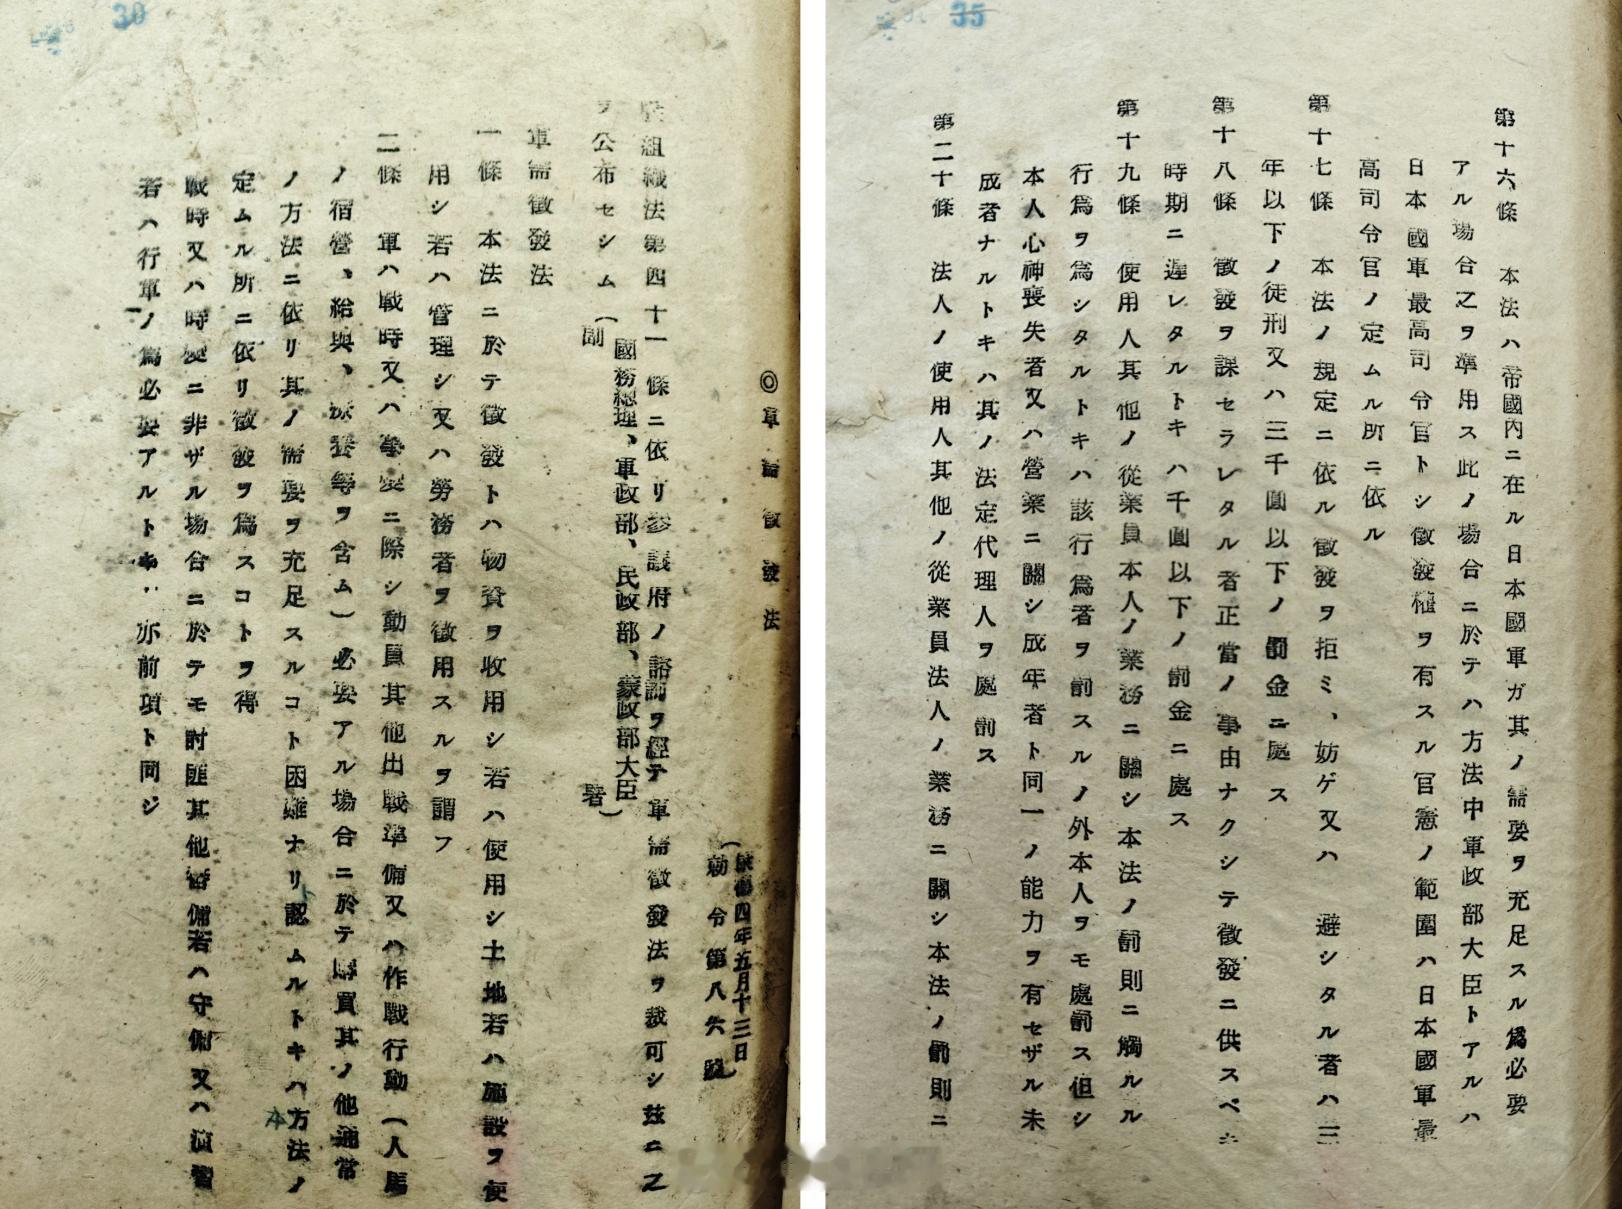 30
◎軍需徵發法
(康德四年五月十三日)
勅令第八六號
組織法第四十一條ニ依リ參議府ノ諮詢ヲ經テ軍需徵發法ヲ裁可シ玆ニ之
ヲ公布セシム
(國務總理、軍政部、民政部、蒙政部大臣
副署)
軍需徵發法
一條 本法ニ於テ徵發トハ物資ヲ收用シ若ハ使用シ土地若ハ施設ヲ使
用シ若ハ管理シ又ハ勞務者ヲ徵用スルヲ謂フ
二條 軍ハ戰時又ハ事變ニ際シ動員其他出戰準備又ハ作戰行動(人馬
ノ宿營、給與、療養等ヲ含ム)必要アル場合ニ於テ購買其ノ他通常
ノ方法ニ依リ其ノ需要ヲ充足スルコト困難ナリ認ムルトキハ本方法ノ
定ムル所ニ依リ徵發ヲ爲スコトヲ得
戰時又ハ時變ニ非ザル場合ニ於テモ討匪其他警備若ハ守備又ハ演習
若ハ行軍ノ爲必要アルトキ亦前項ト同ジ
35
第十六條 本法ハ帝國內ニ在ル日本國軍ガ其ノ需要ヲ充足スル爲必要
アル場合之ヲ準用ス此ノ場合ニ於テハ方法中軍政部大臣トアルハ
日本國軍最高司令官トシ徵發權ヲ有スル官憲ノ範圍ハ日本國軍最
高司令官ノ定ムル所ニ依ル
第十七條 本法ノ規定ニ依ル徵發ヲ拒ミ、妨ゲ又ハ 避シタル者ハ三
年以下ノ徒刑又ハ三千圓以下ノ罰金ニ處ス
第十八條 徵發ヲ課セラレタル者正當ノ事由ナクシテ徵發ニ供スベキ
時期ニ遲レタルトキハ千圓以下ノ罰金ニ處ス
第十九條 使用人其他ノ從業員本人ノ業務ニ關シ本法ノ罰則ニ觸ルル
行爲ヲ爲シタルトキハ該行爲者ヲ罰スルノ外本人ヲモ處罰ス但シ
本人心神喪失者又ハ營業ニ關シ成年者ト同一ノ能力ヲ有セザル未
成者ナルトキハ其ノ法定代理人ヲ處罰ス
第二十條 法人ノ使用人其他ノ從業員法人ノ業務ニ關シ本法ノ罰則ニ